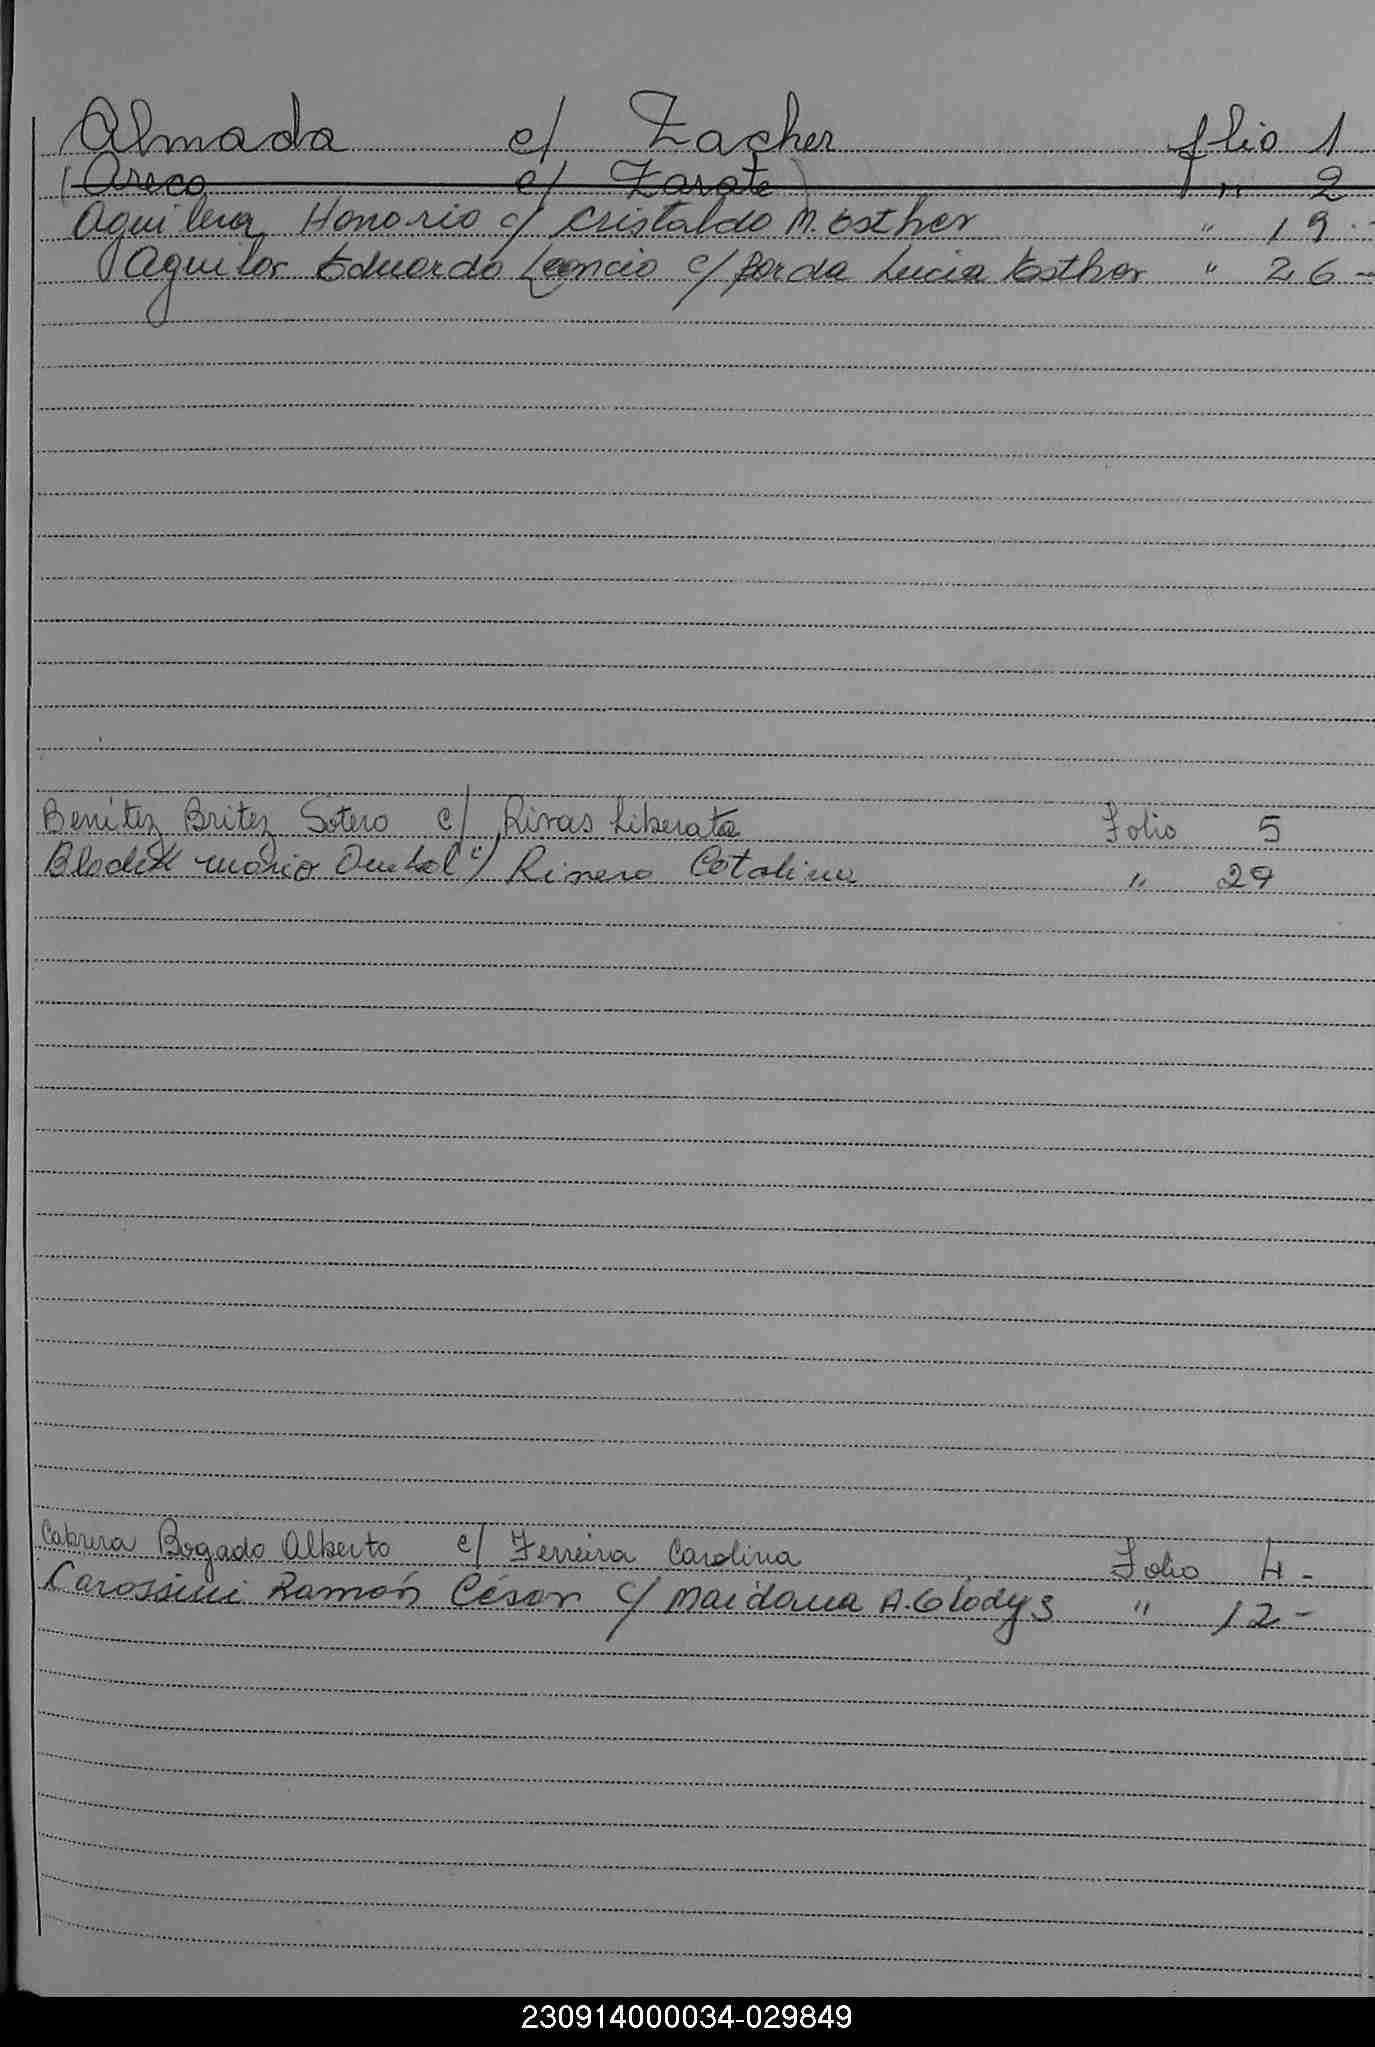 Almada c/ Zacher folio 1
(Areco c/ Zarate) " 2
Aguilera Honorio c/ Cristaldo M. Esther " 19.-
Aguilar Eduardo Leoncio c/ Borda Lucia Esther " 26-
Benítez Britez Sotero c/ Rivas Liberata Folio 5
Mario c/ Catalina " 29
Cabrera Bogado Alberto c/ Ferreira Carolina Folio 4-
Carossini Ramón César c/ Maidana A. Gladys " 12-
230914000034-029849